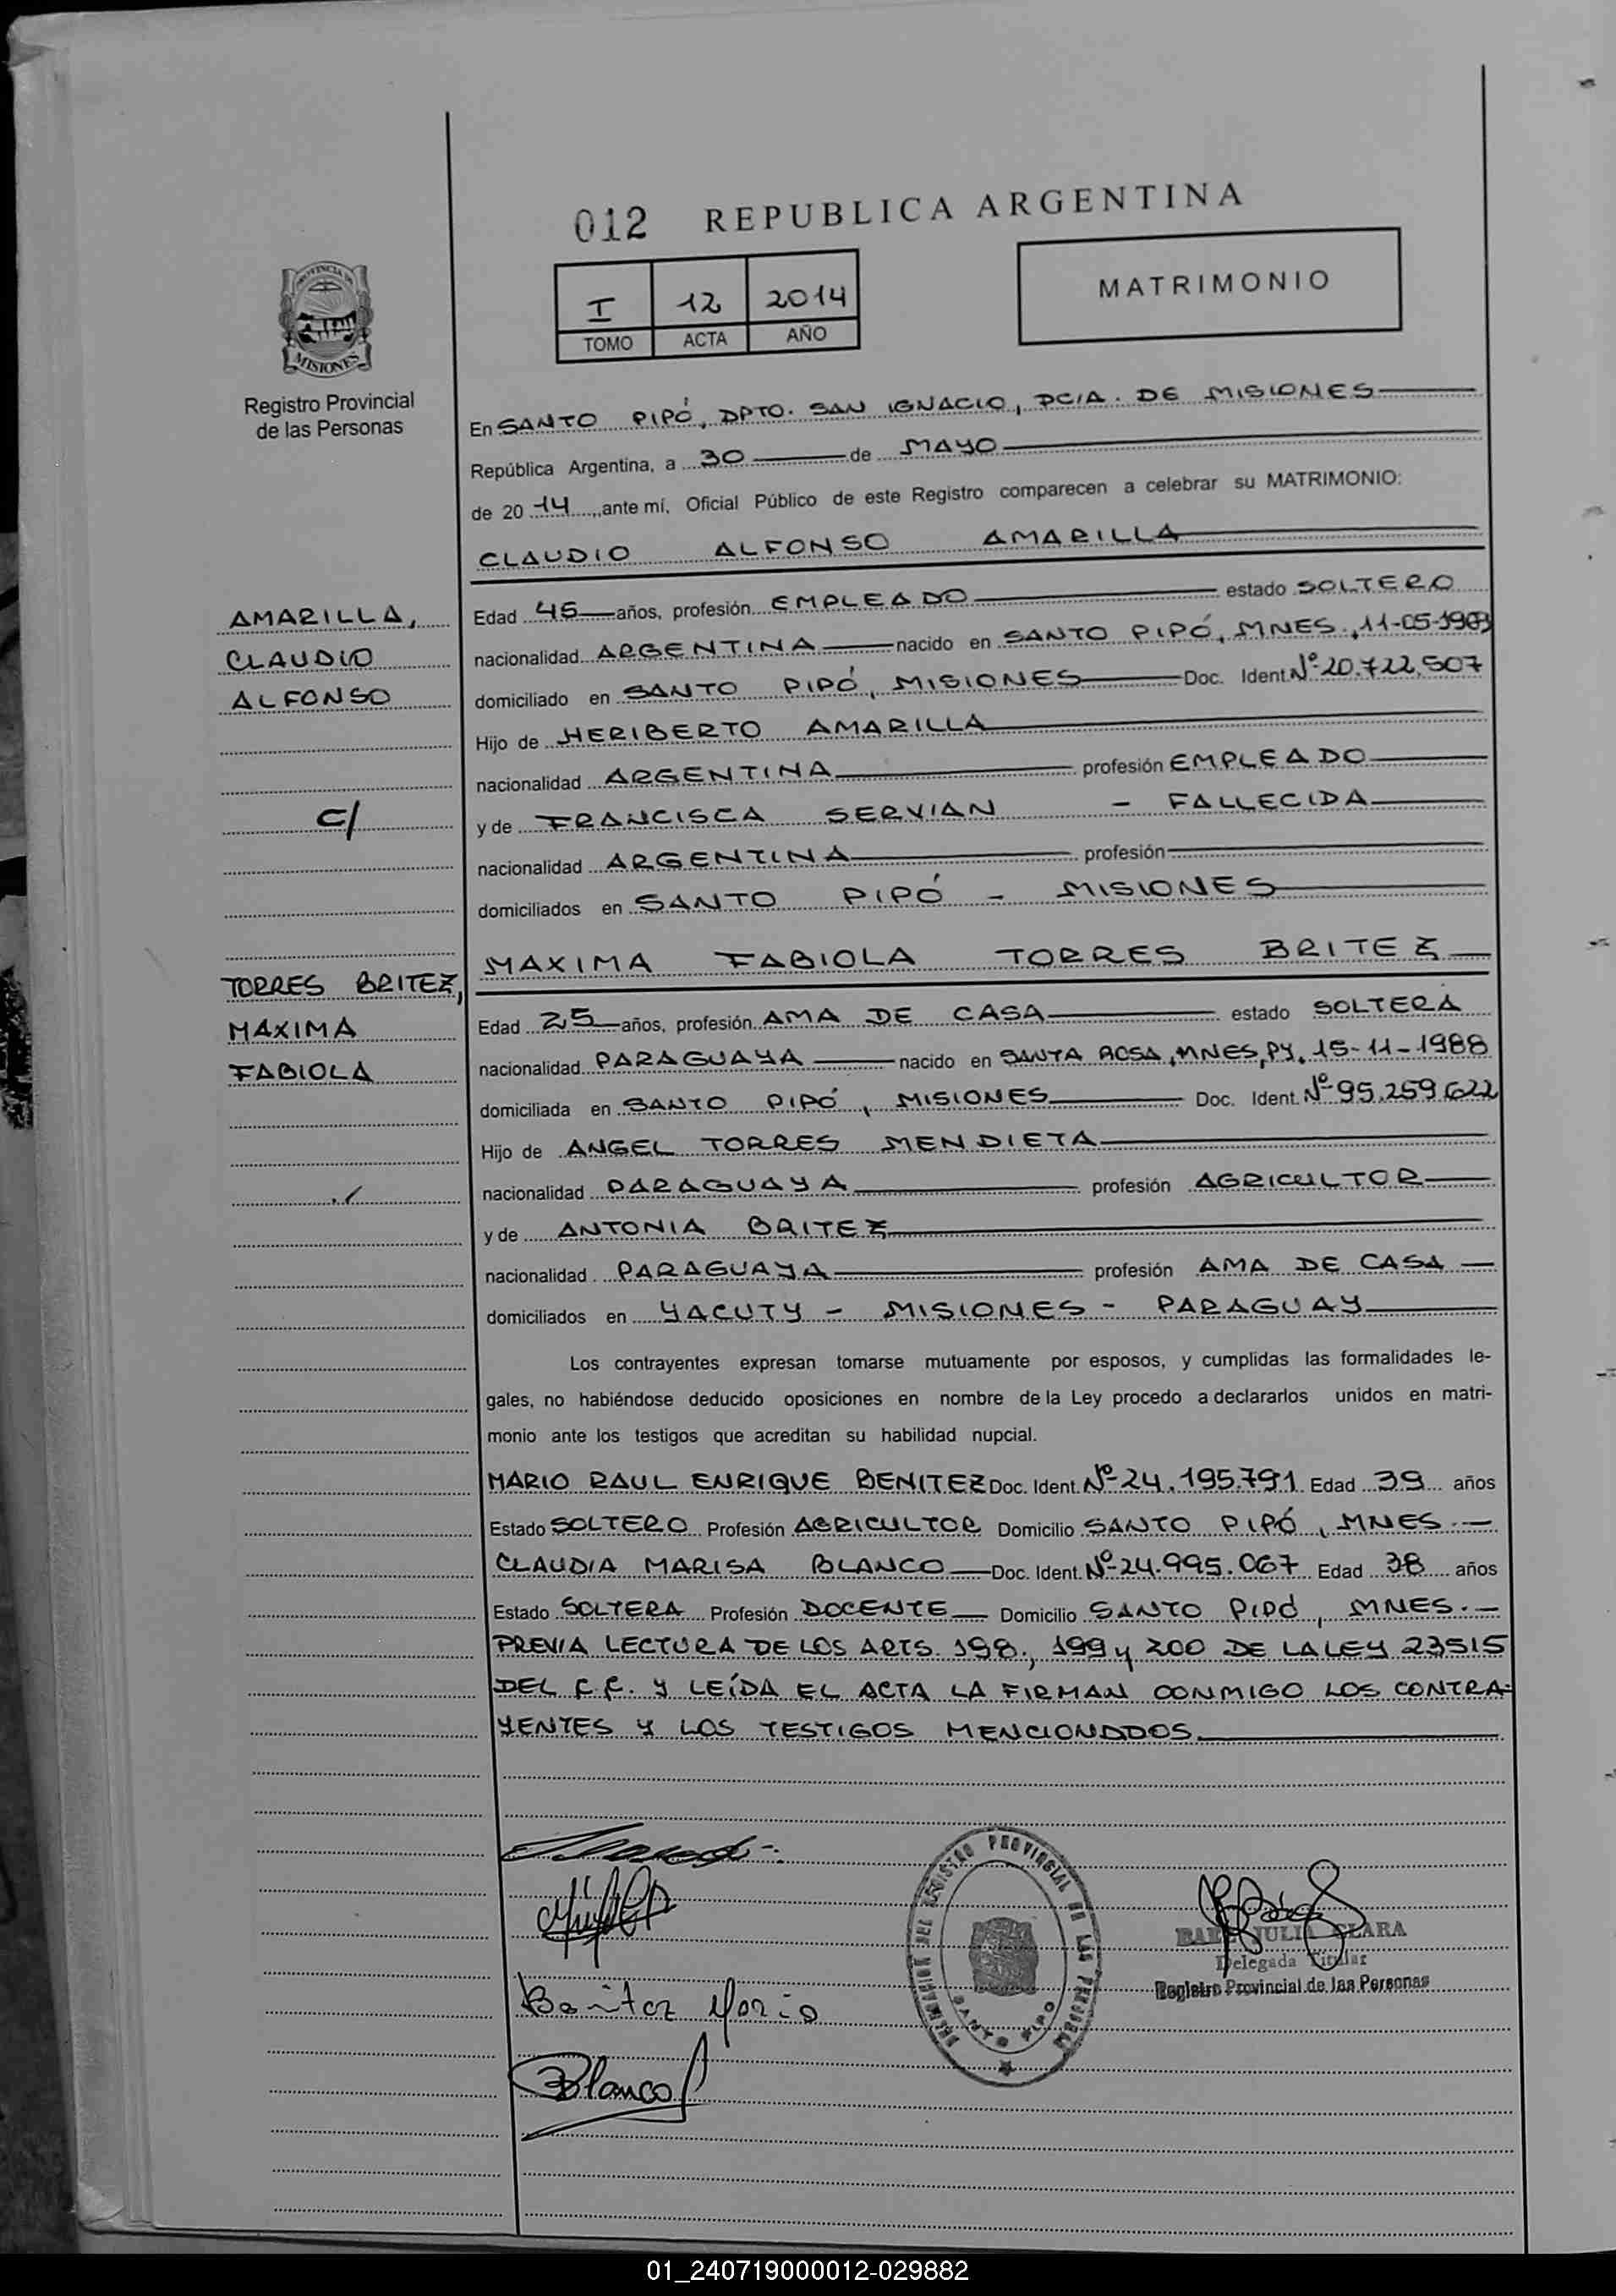 012 REPUBLICA ARGENTINA
I 12 2014
TOMO ACTA AÑO
MATRIMONIO
PROVINCIA DE
MISIONES
Registro Provincial
de las Personas
En SANTO PIPÓ, DPTO. SAN IGNACIO, PCIA. DE MISIONES
República Argentina, a 30 de MAYO
de 20 14, ante mí, Oficial Público de este Registro comparecen a celebrar su MATRIMONIO:
CLAUDIO ALFONSO AMARILLA
AMARILLA,
CLAUDIO
ALFONSO
C/
TORRES BRITEZ,
MAXIMA
FABIOLA
Edad 45 años, profesión EMPLEADO estado SOLTERO
nacionalidad ARGENTINA nacido en SANTO PIPÓ, MNES., 11-05-
domiciliado en SANTO PIPÓ, MISIONES Doc. Ident. Nº 20.722.507
Hijo de HERIBERTO AMARILLA
nacionalidad ARGENTINA profesión EMPLEADO
y de FRANCISCA SERVIAN - FALLECIDA
nacionalidad ARGENTINA profesión
domiciliados en SANTO PIPÓ - MISIONES
MAXIMA FABIOLA TORRES BRITEZ
Edad 25 años, profesión AMA DE CASA estado SOLTERA
nacionalidad PARAGUAYA nacido en SANTA ROSA, MNES, PY, 15-11-1988
domiciliada en SANTO PIPÓ, MISIONES Doc. Ident. Nº 95.259.622
Hijo de ANGEL TORRES MENDIETA
nacionalidad PARAGUAYA profesión AGRICULTOR
y de ANTONIA BRITEZ
nacionalidad PARAGUAYA profesión AMA DE CASA
domiciliados en YACUTY - MISIONES - PARAGUAY
Los contrayentes expresan tomarse mutuamente por esposos, y cumplidas las formalidades le-
gales, no habiéndose deducido oposiciones en nombre de la Ley procedo a declararlos unidos en matri-
monio ante los testigos que acreditan su habilidad nupcial.
MARIO RAUL ENRIQUE BENITEZ Doc. Ident. Nº 24.195.791 Edad 39 años
Estado SOLTERO Profesión AGRICULTOR Domicilio SANTO PIPÓ, MNES.
CLAUDIA MARISA BLANCO Doc. Ident. Nº 24.995.067 Edad 38 años
Estado SOLTERA Profesión DOCENTE Domicilio SANTO PIPÓ, MNES.
PREVIA LECTURA DE LOS ARTS. 198., 199 y 200 DE LA LEY 23515
DEL C.C. Y LEÍDA EL ACTA LA FIRMAN CONMIGO LOS CONTRA-
YENTES Y LOS TESTIGOS MENCIONADOS
Benitez Mario
Blanco
DELEGACION DEL REGISTRO PROVINCIAL DE LAS PERSONAS
SANTO PIPO
JULIA CLARA
Delegada Titular
Registro Provincial de las Personas
01_240719000012-029882